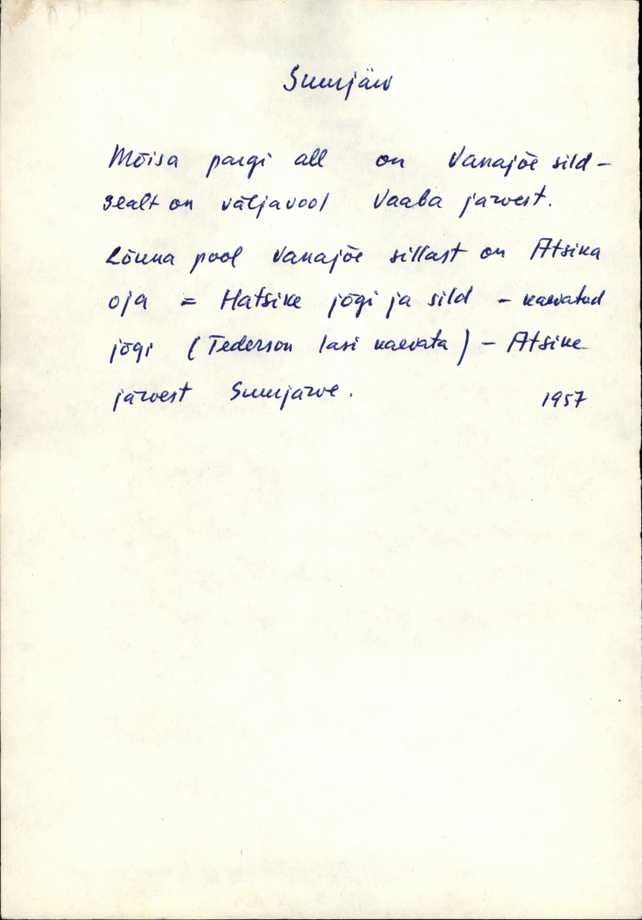 Suurjärv
Mõisa pargi all on Vanajõe sild -
sealt on väljavool Vaaba järvest.
Lõuna pool Vanajõe sillast on Atsika
oja = Hatsike jõgi ja sild - kaevatud
jõgi (Tederson lasi kaevata) - Atsike
järvest Suurjärve.
1957